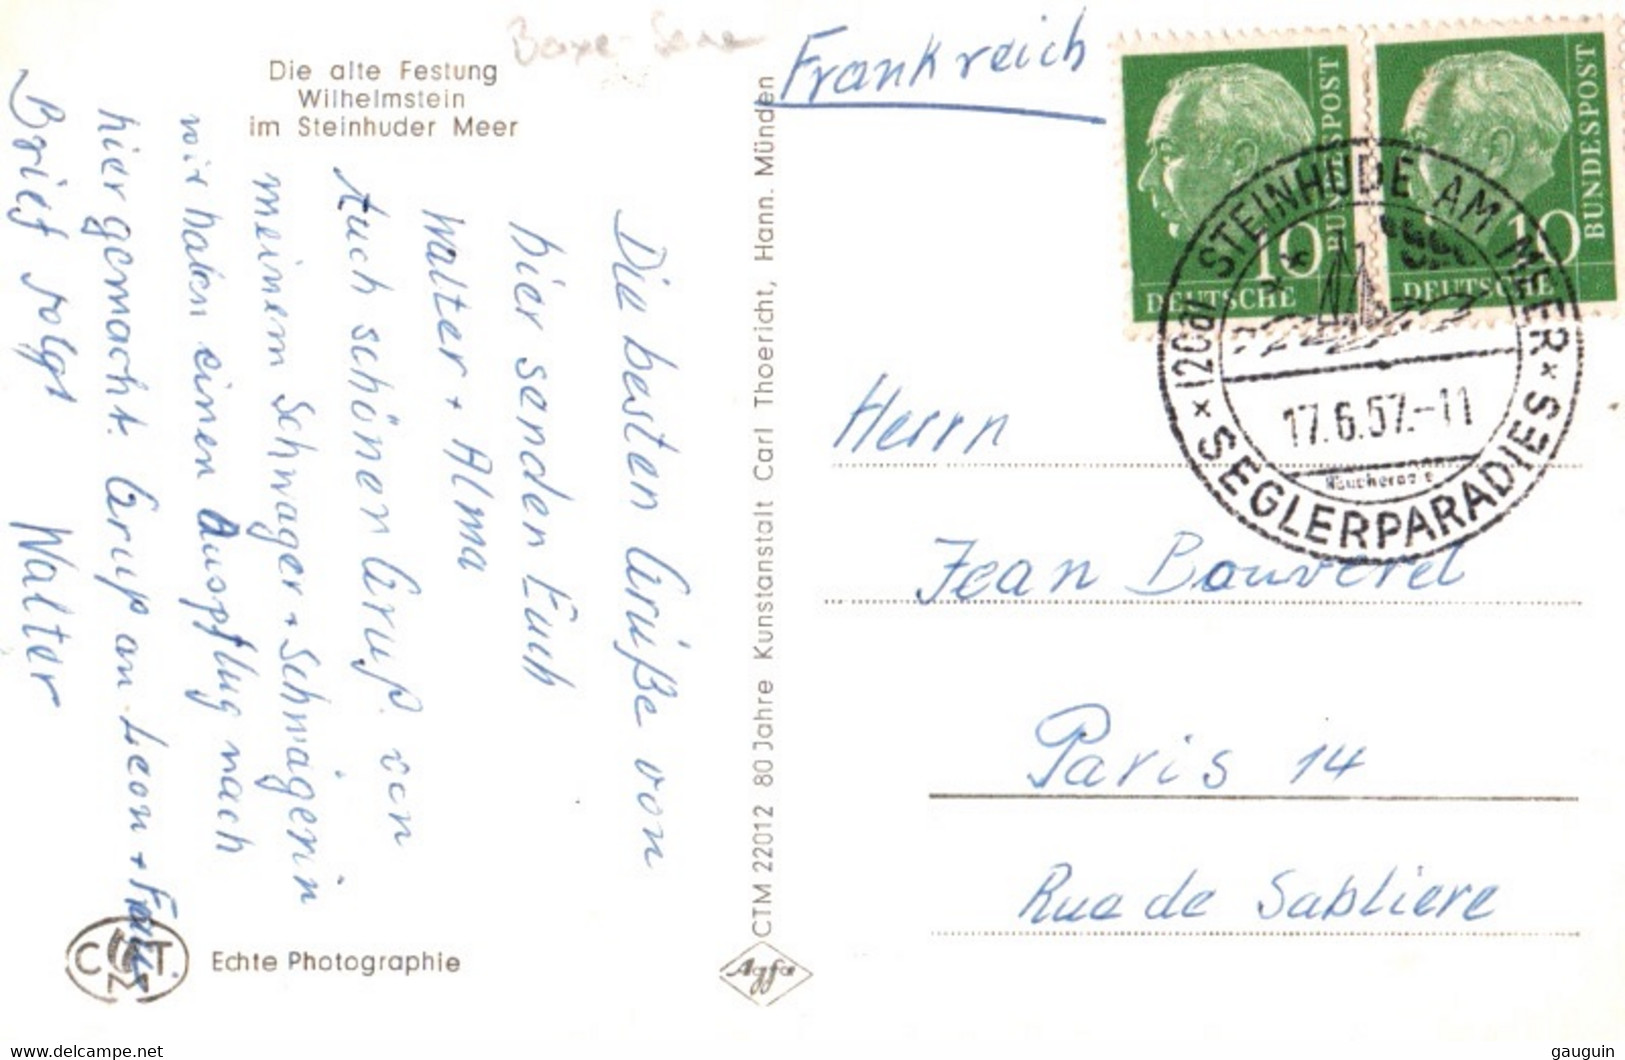 Die alte Festung
Wilhelmstein
im Steinhuder Meer
Die besten Grüße von
hier senden Euch
Walter + Alma
Auch schönen Gruß von
meinem Schwager + Schwägerin
wir haben einen Ausflug nach
hier gemacht. Gruß an Leon + Frau
Brief folgt Walter
CTM
Echte Photographie
CTM 22012 80 Jahre Kunstanstalt Carl Thoericht, Hann. Münden
Agfa
Frankreich
BUNDESPOST
10
DEUTSCHE
BUNDESPOST
10
DEUTSCHE
(20a) STEINHUDE AM MEER
17.6.57.-11
SEGLERPARADIES
Herrn
Jean Bouveret
Paris 14
Rue de Sabliere
www.delcampe.net
gauguin